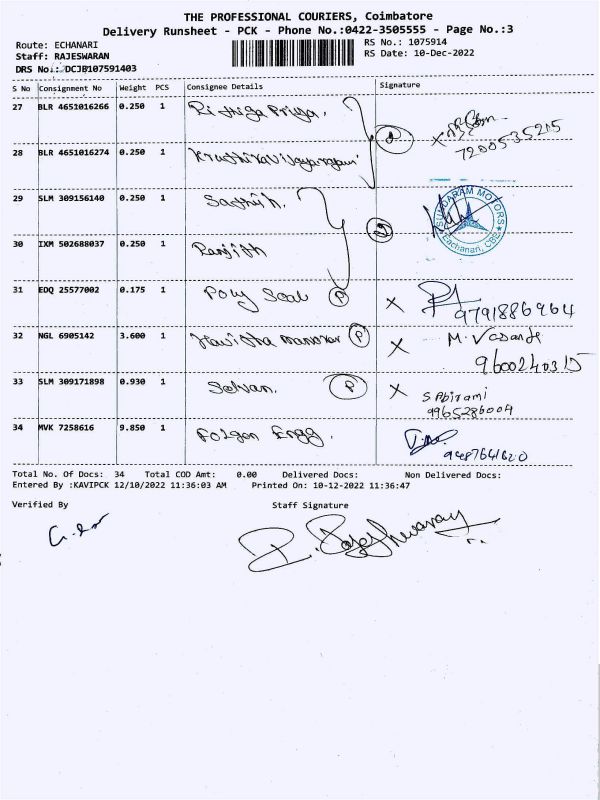 THE PROFESSIONAL COURIERS, Coimbatore
Delivery Runsheet - PCK - Phone No.:0422-3505555 - Page No.:3
Route: ECHANARI
RS No.: 1075914
Staff: RAJESWARAN
RS Date: 10-Dec-2022
DRS No.:DCJB107591403
S No Consignment No Weight PCS Consignee Details Signature
27 BLR 4651016266 0.250 1 Rithiga Priya.
7200535215
28 BLR 4651016274 0.250 1
29 SLM 309156140 0.250 1
SUNDARAM MOTORS
Eachanari, CBE
30 IXM 502688037 0.250 1 Ranjith
31 EDQ 25577002 0.175 1 Poly Seal P X
9791886964
32 NGL 6905142 3.600 1 Manohar P X M. Vasanth
9600240315
33 SLM 309171898 0.930 1 Selvan. P X S Abirami
9965286004
34 MVK 7258616 9.850 1 Engg.
9487641620
Total No. Of Docs: 34 Total COD Amt: 0.00 Delivered Docs: Non Delivered Docs:
Entered By :KAVIPCK 12/10/2022 11:36:03 AM Printed On: 10-12-2022 11:36:47
Verified By Staff Signature
R. Rajeshwaran